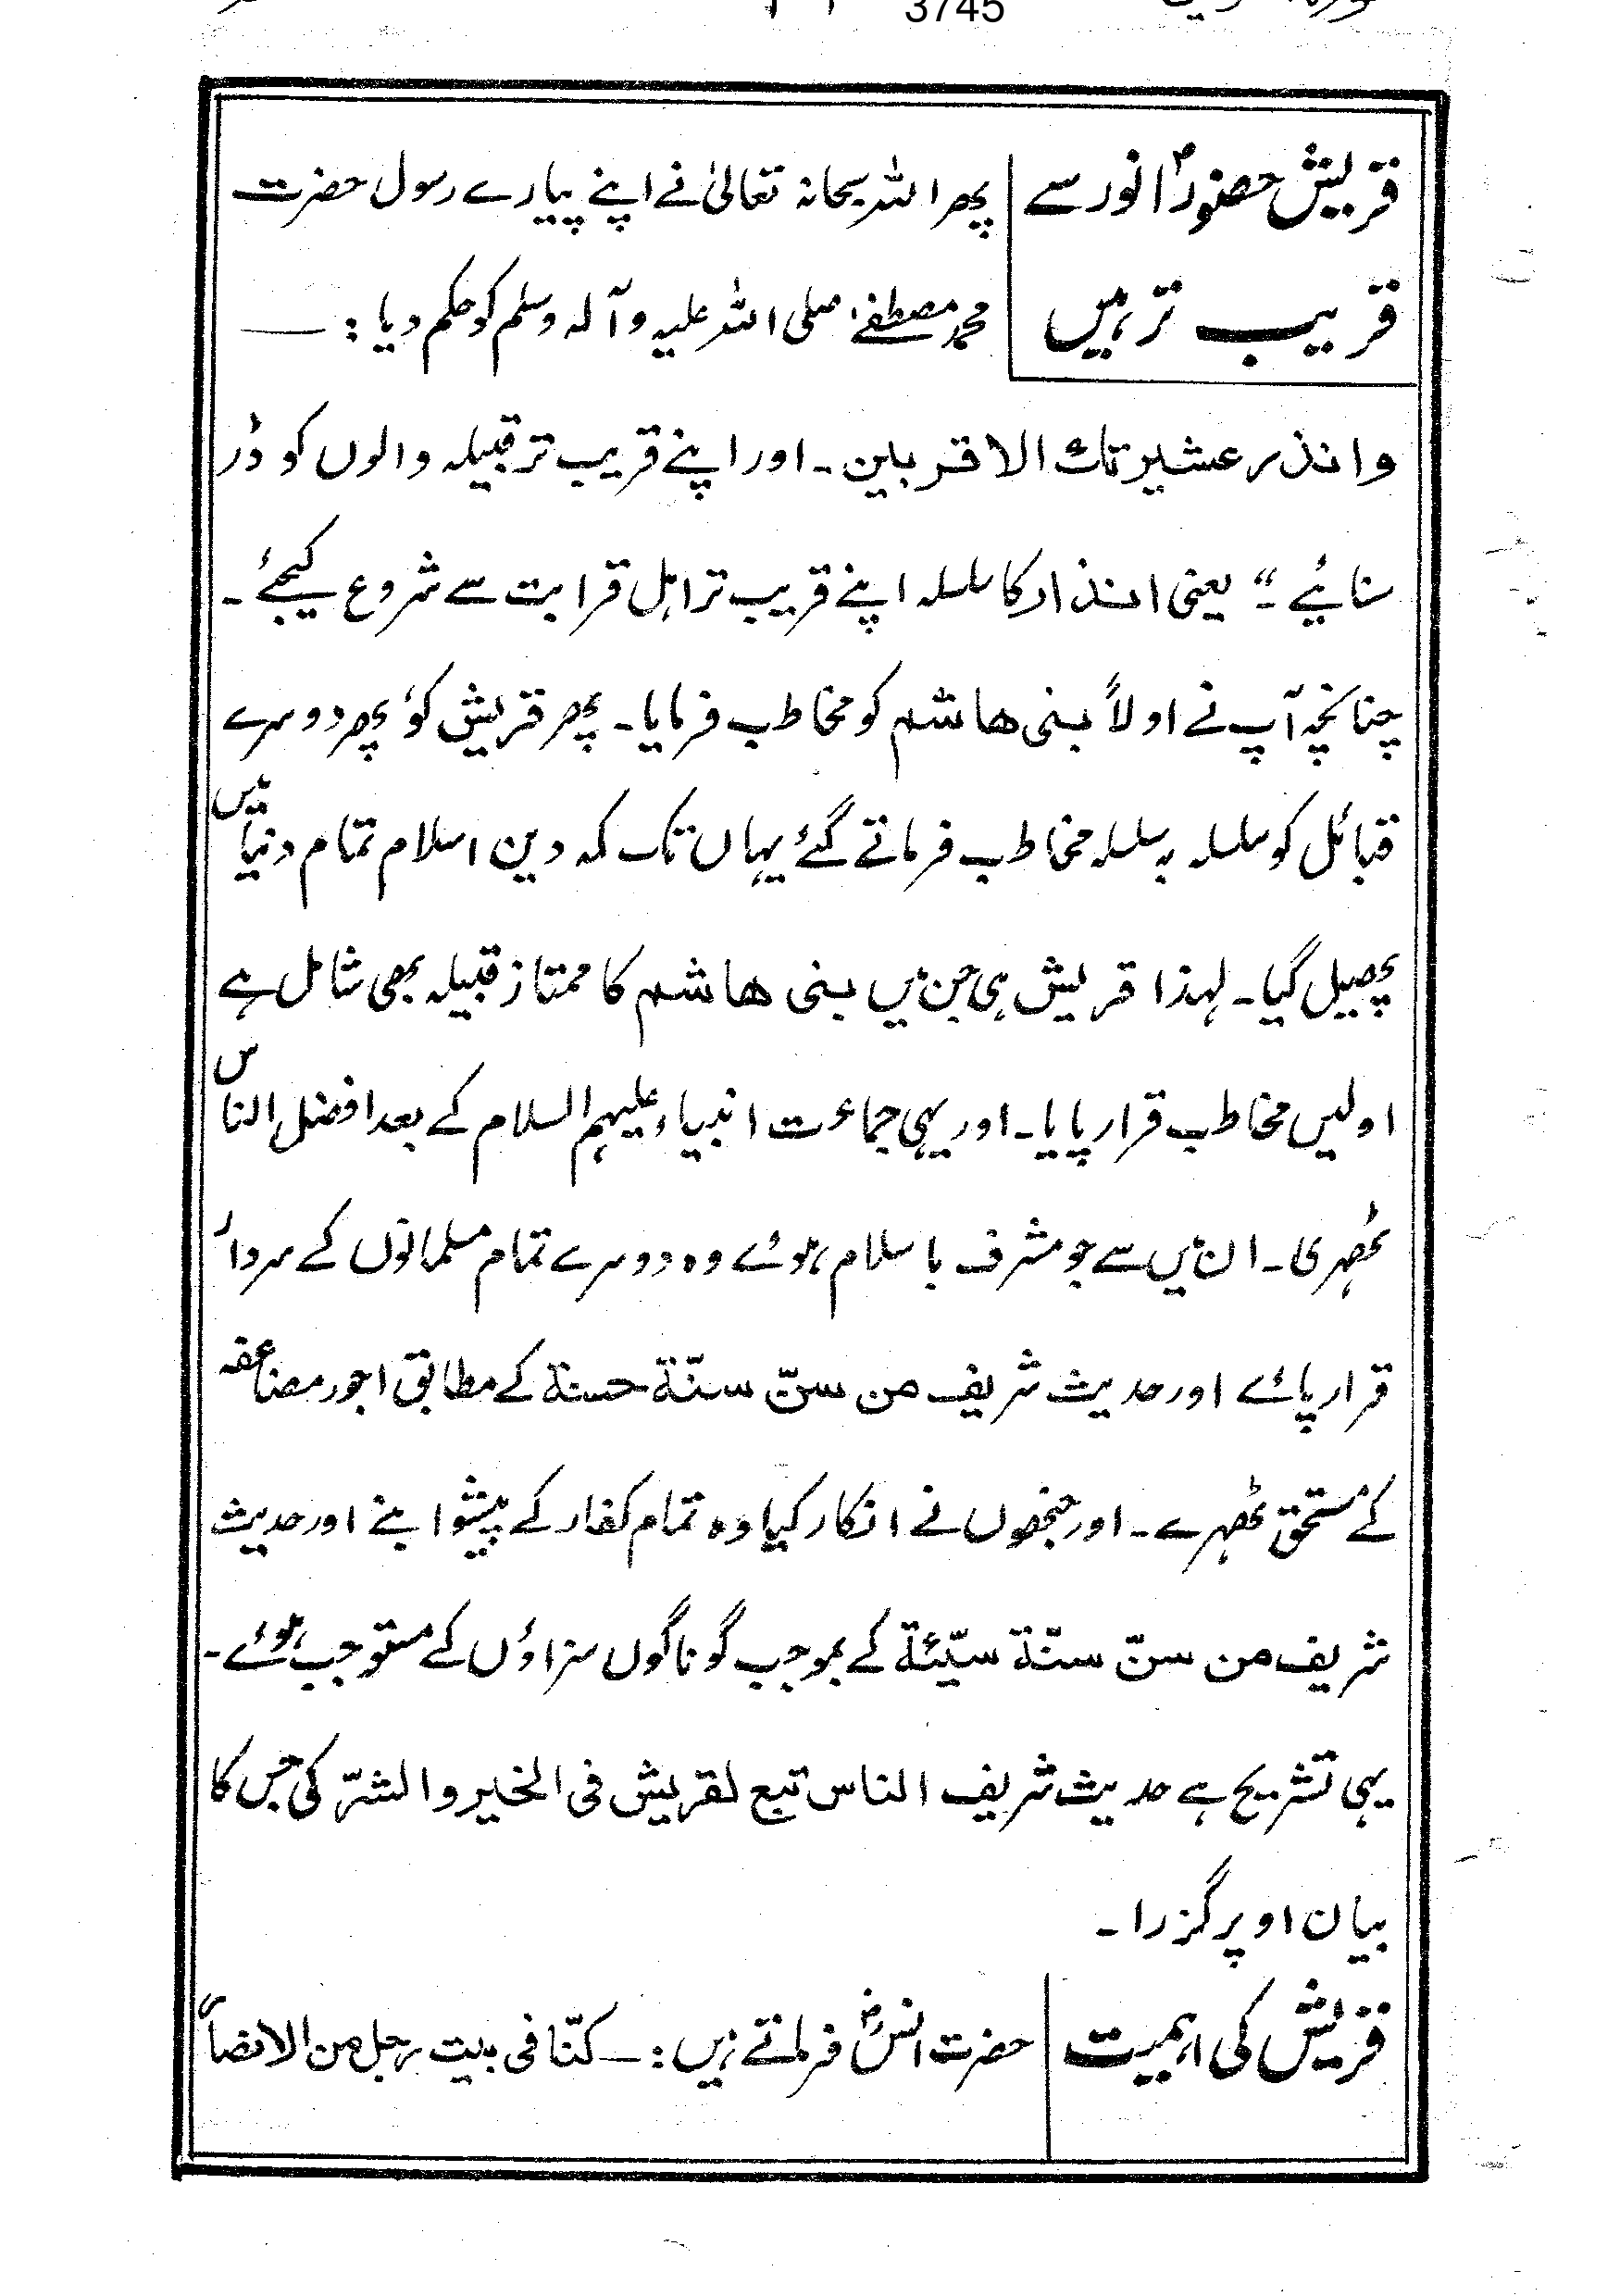 3745
قریش حضورؐ انور سے پھر اللہ سبحانہ تعالیٰ نے اپنے پیارے رسول حضرت
قریب تر ہیں محمد مصطفےٰ صلی اللہ علیہ و آلہ وسلم کو حکم دیا : —
وانذر عشیرتک الاقربین ۔ اور اپنے قریب تر قبیلہ والوں کو ڈر
سنائیے ۔“ یعنی انذار کا سلسلہ اپنے قریب تر اہل قرابت سے شروع کیجئے ۔
چنانچہ آپ نے اولاً بنی ھاشم کو مخاطب فرمایا ۔ پھر قریش کو، پھر دوسرے
قبائل کو سلسلہ بہ سلسلہ مخاطب فرماتے گئے یہاں تک کہ دین اسلام تمام دنیا میں
پھیل گیا ۔ لہذا قریش ہی جن میں بنی ھاشم کا ممتاز قبیلہ بھی شامل ہے
اولیں مخاطب قرار پایا ۔ اور یہی جماعت انبیاء علیہم السلام کے بعد افضل الناس
ٹھہری ۔ ان میں سے جو مشرف باسلام ہوئے وہ دوسرے تمام مسلمانوں کے سردار
قرار پائے اور حدیث شریف من سنّ سنّة حسنة کے مطابق اجور مضاعفہ
کے مستحق ٹھہرے ۔ اور جنھوں نے انکار کیا وہ تمام کفار کے پیشوا بنے اور حدیث
شریف من سنّ سنّة سیّئة کے بموجب گوناگوں سزاؤں کے مستوجب ہوئے ۔
یہی تشریح ہے حدیث شریف الناس تبع لقریش فی الخیر والشرّ کی جس کا
بیان اوپر گزرا ۔
قریش کی اہمیت حضرت انسؓ فرماتے ہیں : — کنّا فی بیت رجل من الانصار